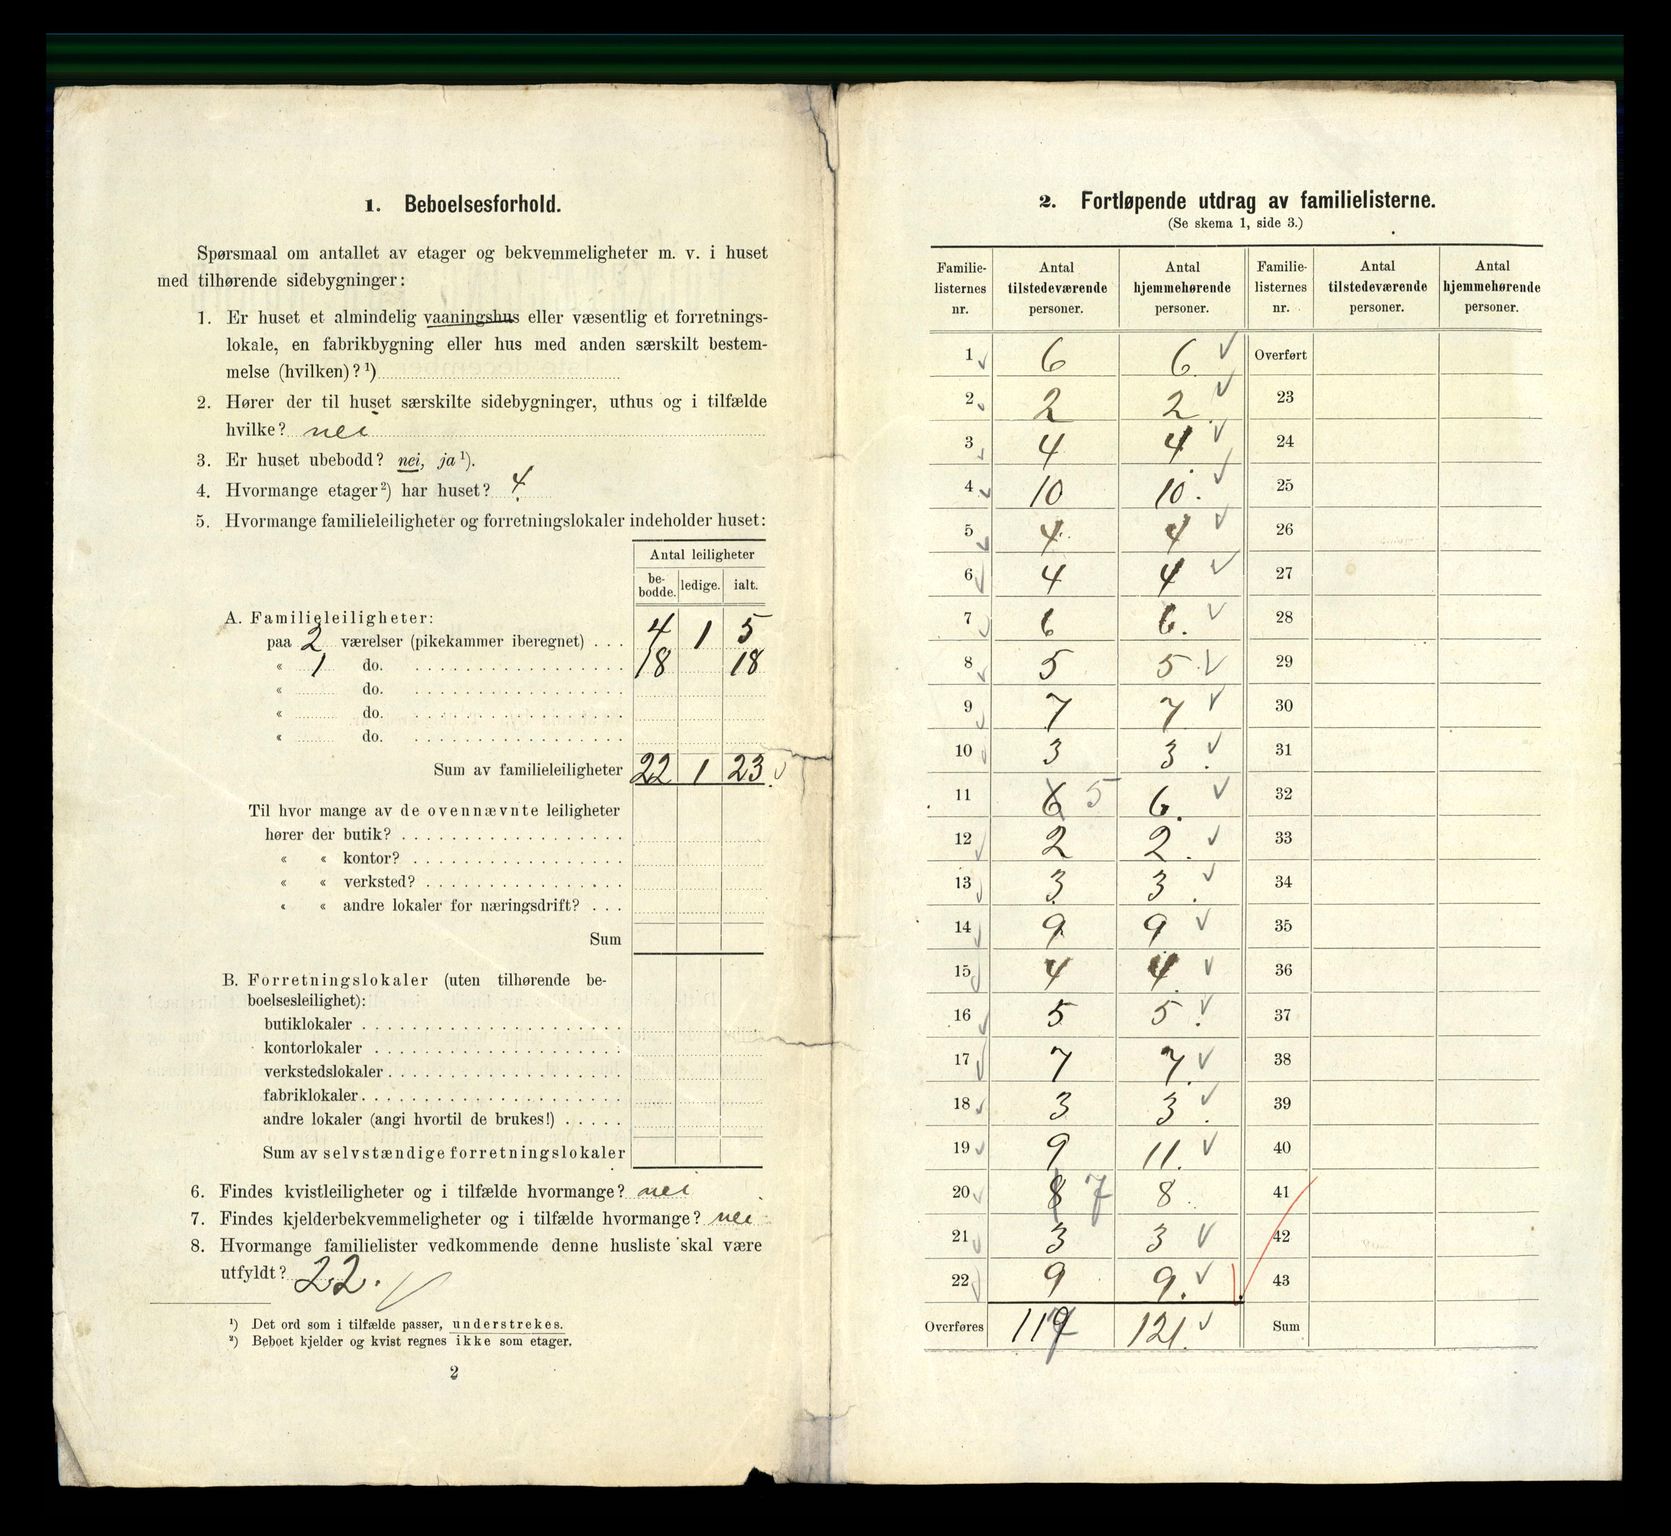 1. Beboelsesforhold.
Spørsmaal om antallet av etager og bekvemmeligheter m. v. i huset
med tilhørende sidebygninger:
1. Er huset et almindelig vaaningshus eller væsentlig et forretnings-
lokale, en fabrikbygning eller hus med anden særskilt bestem-
melse (hvilken)? ¹)
2. Hører der til huset særskilte sidebygninger, uthus og i tilfælde
hvilke? nei
3. Er huset ubebodd? nei, ja ¹).
4. Hvormange etager ²) har huset? 4
5. Hvormange familieleiligheter og forretningslokaler indeholder huset:
Antal leiligheter
be-
bodde. ledige. ialt.
A. Familieleiligheter:
paa 2 værelser (pikekammer iberegnet) . . . 4 1 5
« 1 do. 18 18
« do.
« do.
« do.
Sum av familieleiligheter 22 1 23
Til hvor mange av de ovennævnte leiligheter
hører der butik?
« « kontor?
« « verksted?
« « andre lokaler for næringsdrift?
Sum
B. Forretningslokaler (uten tilhørende be-
boelsesleilighet):
butiklokaler
kontorlokaler
verkstedslokaler
fabriklokaler
andre lokaler (angi hvortil de brukes!)
Sum av selvstændige forretningslokaler
6. Findes kvistleiligheter og i tilfælde hvormange? nei
7. Findes kjelderbekvemmeligheter og i tilfælde hvormange? nei
8. Hvormange familielister vedkommende denne husliste skal være
utfyldt? 22.
¹) Det ord som i tilfælde passer, understrekes.
²) Beboet kjelder og kvist regnes ikke som etager.
2
2. Fortløpende utdrag av familielisterne.
(Se skema 1, side 3.)
Familie- Antal Antal Familie- Antal Antal
listernes tilstedeværende hjemmehørende listernes tilstedeværende hjemmehørende
nr. personer. personer. nr. personer. personer.
1 6 6. Overført
2 2 2. 23
3 4 4 24
4 10 10. 25
5 4 4 26
6 4 4 27
7 6 6. 28
8 5 5. 29
9 7 7 30
10 3 3. 31
11 6 5 6. 32
12 2 2. 33
13 3 3. 34
14 9 9 35
15 4 4. 36
16 5 5. 37
17 7 7. 38
18 3 3. 39
19 9 11. 40
20 8 7 8. 41
21 3 3 42
22 9 9. 43
Overføres 117 121. Sum